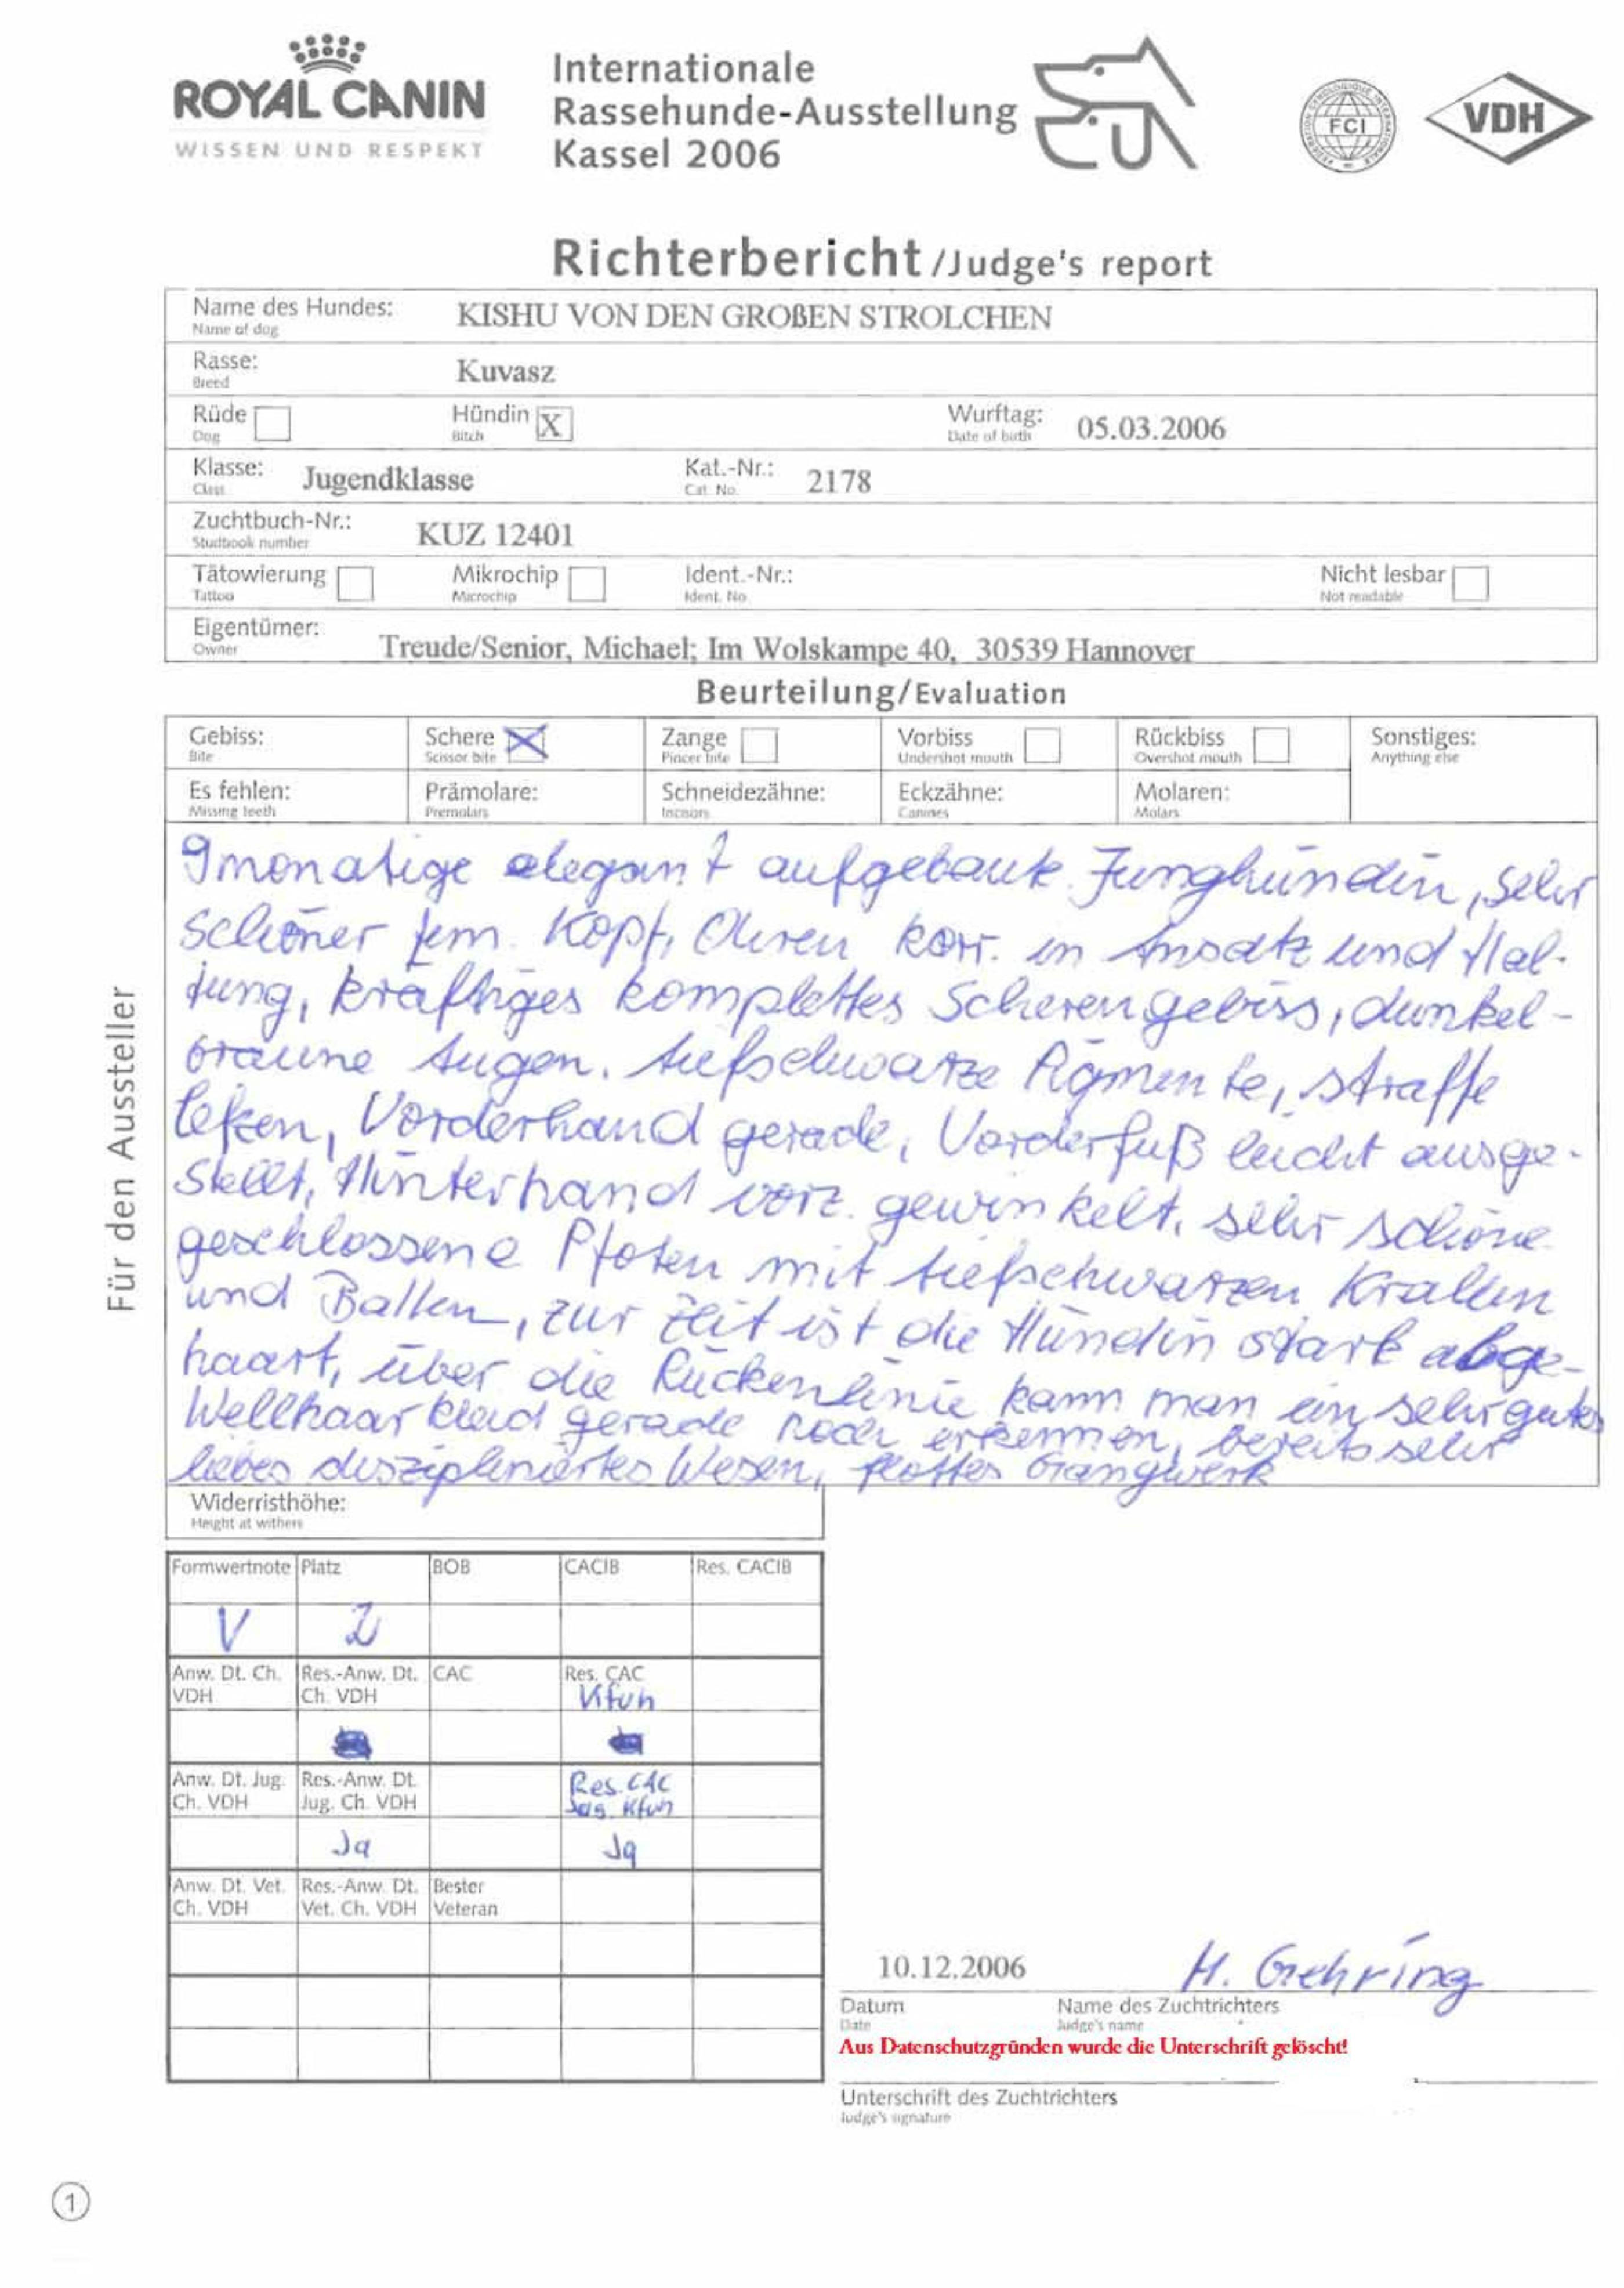 ROYAL CANIN
WISSEN UND RESPEKT
Internationale
Rassehunde-Ausstellung
Kassel 2006
FCI
VDH
Richterbericht/Judge's report
Name des Hundes: KISHU VON DEN GROßEN STROLCHEN
Name of dog
Rasse: Kuvasz
Breed
Rüde Hündin X Wurftag: 05.03.2006
Dog Bitch Date of birth
Klasse: Jugendklasse Kat.-Nr.: 2178
Class Cat. No.
Zuchtbuch-Nr.: KUZ 12401
Studbook number
Tätowierung Mikrochip Ident.-Nr.: Nicht lesbar
Tattoo Microchip Ident. No Not readable
Eigentümer: Treude/Senior, Michael; Im Wolskampe 40, 30539 Hannover
Owner
Beurteilung/Evaluation
Gebiss: Schere X Zange Vorbiss Rückbiss Sonstiges:
Bite Scissor bite Pincer bite Undershot mouth Overshot mouth Anything else
Es fehlen: Prämolare: Schneidezähne: Eckzähne: Molaren:
Missing teeth Premolars Incisors Canines Molars
9monatige elegant aufgebaute Junghündin, sehr
schöner fem. Kopf, Ohren korr. in Ansatz und Hal-
tung, kräftiges komplettes Scherengebiss, dunkel-
braune Augen. tiefschwarze Pigmente, straffe
Lefzen, Vorderhand gerade, Vorderfuß leicht ausge-
stellt, Hinterhand vorz. gewinkelt, sehr schöne
geschlossene Pfoten mit tiefschwarzen Krallen
und Ballen, zur Zeit ist die Hündin stark abge-
haart, über die Rückenlinie kann man ein sehr gutes
Wellhaarkleid gerade noch erkennen, bereits sehr
liebes diszipliniertes Wesen, flottes Gangwerk
Für den Aussteller
Widerristhöhe:
Height at withers
Formwertnote Platz BOB CACIB Res. CACIB
V 2
Anw. Dt. Ch. Res.-Anw. Dt. CAC Res. CAC
VDH Ch. VDH Kfuh
Anw. Dt. Jug. Res.-Anw. Dt. Res. CAC
Ch. VDH Jug. Ch. VDH Jug. Kfuh
Ja Ja
Anw. Dt. Vet. Res.-Anw. Dt. Bester
Ch. VDH Vet. Ch. VDH Veteran
10.12.2006 H. Gehring
Datum Name des Zuchtrichters
Date Judge's name
Aus Datenschutzgründen wurde die Unterschrift gelöscht!
Unterschrift des Zuchtrichters
Judge's signature
1